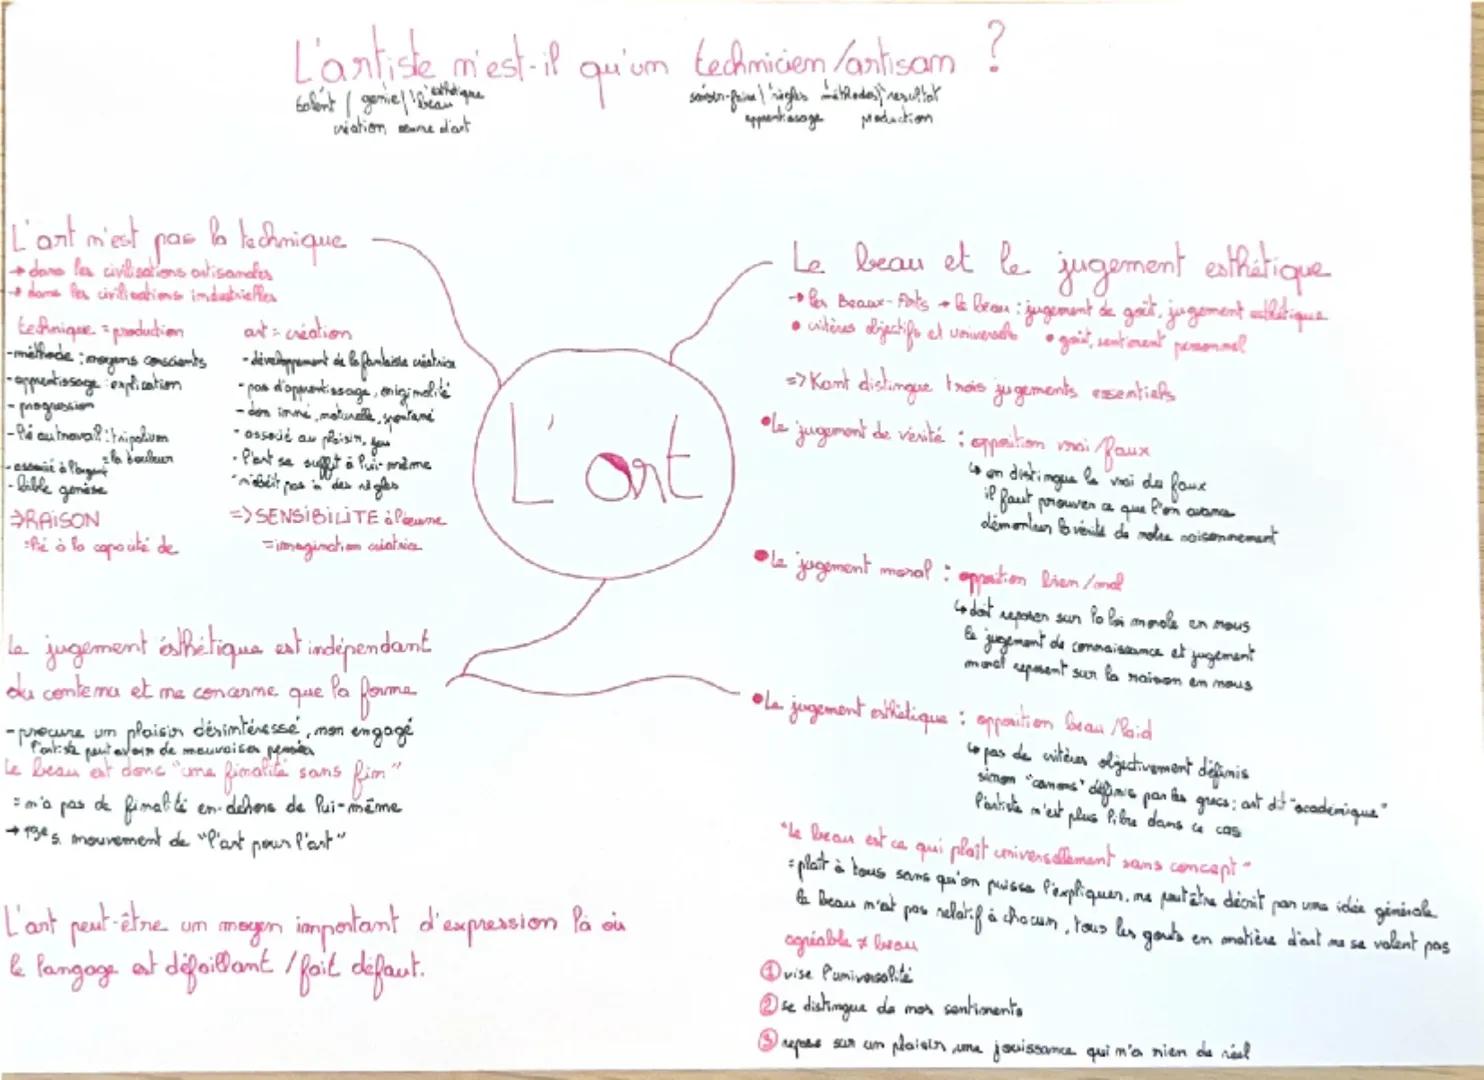 L'artiste n'est-il qu'un technicien/artisan ?
talent / génie / beau esthétique
création œuvre d'art
savoir-faire / règles méthodes / résultat
apprentissage production
L'art n'est pas la technique
→ dans les civilisations artisanales
→ dans les civilisations industrielles
technique = production
- méthode : moyens conscients
- apprentissage : explication
- progression
- lié au travail : tripalium
= la douleur
- associé à l'argent
- bible genèse
⇒ RAISON
= lié à la capacité de
art = création
- développement de la fantaisie créatrice
- pas d'apprentissage, originalité
- don inné, naturelle, spontané
- associé au plaisir, jeu
- l'art se suffit à lui-même
- n'obéit pas à des règles
=> SENSIBILITE à l'œuvre
= imagination créatrice
L'art
Le beau et le jugement esthétique
→ les Beaux-Arts → le beau : jugement de goût, jugement esthétique
• critères objectifs et universels • goût, sentiment personnel
=> Kant distingue trois jugements essentiels
• Le jugement de vérité : opposition vrai/faux
↳ on distingue le vrai du faux
il faut prouver ce que l'on avance
démontrer la vérité de notre raisonnement
• Le jugement moral : opposition bien/mal
↳ doit reposer sur la loi morale en nous
le jugement de connaissance et jugement
moral reposent sur la raison en nous
• Le jugement esthétique : opposition beau/laid
↳ pas de critères objectivement définis
sinon "canons" définis par les grecs ; art dit "académique"
l'artiste n'est plus libre dans ce cas
"Le beau est ce qui plaît universellement sans concept"
= plaît à tous sans qu'on puisse l'expliquer, ne peut être décrit par une idée générale
le beau n'est pas relatif à chacun, tous les gouts en matière d'art ne se valent pas
agréable ≠ beau
① vise l'universalité
② se distingue de nos sentiments
③ repose sur un plaisir, une jouissance qui n'a rien de réel
Le jugement ésthétique est indépendant
du contenu et ne concerne que la forme
- procure un plaisir désintéressé, non engagé
l'artiste peut avoir de mauvaises pensées
Le beau est donc "une finalité sans fin"
= n'a pas de finalité en-dehors de lui-même
→ 19e s. mouvement de "l'art pour l'art"
L'art peut-être un moyen important d'expression là où
le langage est défaillant / fait défaut.